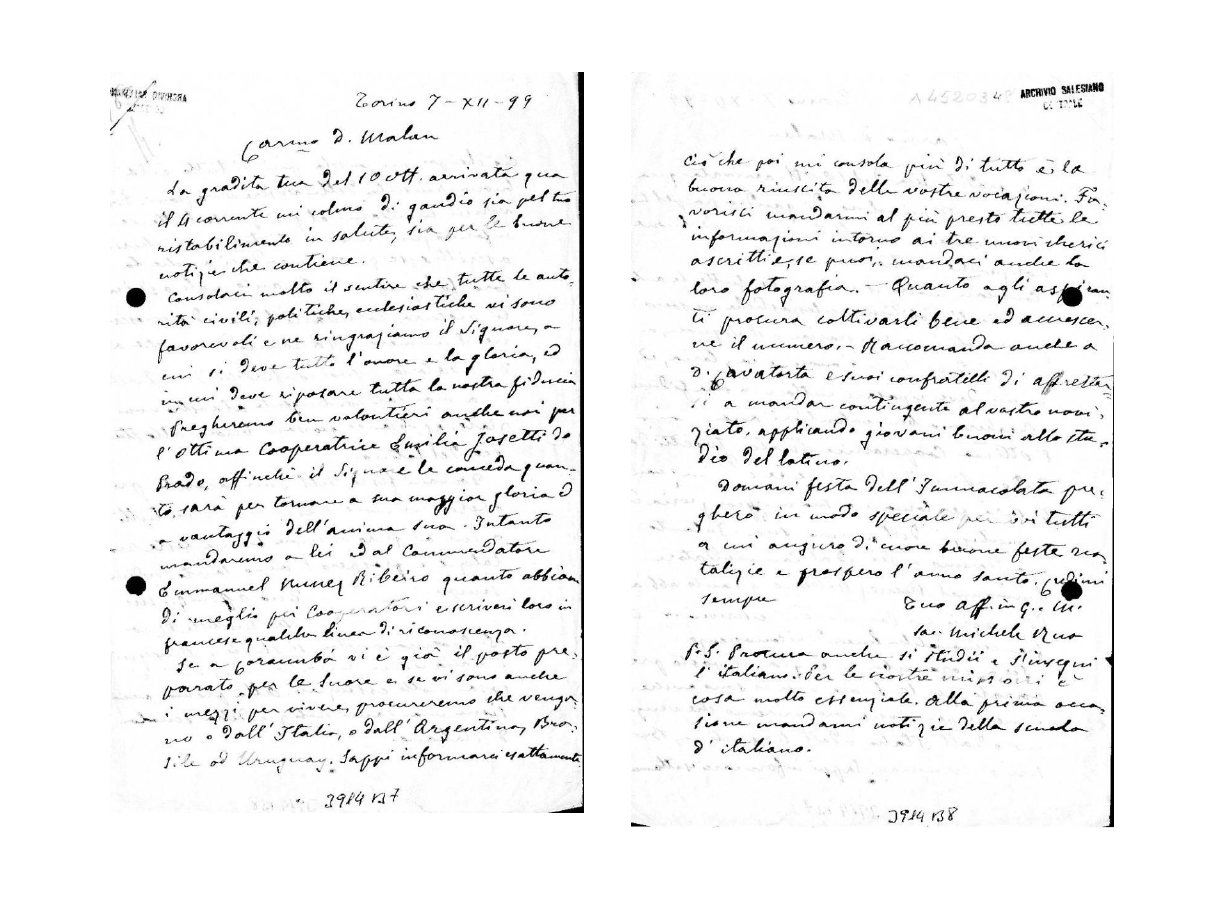 Torino 7-XII-99
Carmo D. Malan
La gradita tua del 10 Ott. arrivata qua
il 4 corrente mi colmò di gaudio sia pel tuo
ristabilimento in salute, sia per le buone
notizie che contiene.
Consolaci molto il sentire che tutte le auto-
rità civili, politiche, ecclesiastiche vi sono
favorevoli e ne ringraziamo il Signore, a
cui si deve tutto l'onore e la gloria, ed
in cui deve riposare tutta la nostra fiducia
Pregheremo ben volontieri anche noi per
l'ottima Cooperatrice Emilia Josetti do
Prado, affinchè il Signore le conceda quan-
to sarà per tornare a sua maggior gloria e
a vantaggio dell'anima sua. Intanto
manderemo a lei ed al Commendatore
Emmanuel Nunez Ribeiro quanto abbiam
di meglio pei Cooperatori e scriverò loro in
francese qualche linea di riconoscenza.
Se a Corumbá vi è già il posto pre-
parato per le Suore e se vi sono anche
i mezzi per vivere, procureremo che venga-
no o dall'Italia, o dall'Argentina, Bra-
sile od Uruguay. Sappi informarci esattamente
3984 B7
A4520349
ARCHIVIO SALESIANO
ciò che poi mi consola più di tutto è la
buona riuscita delle vostre vocazioni. Fa-
vorisci mandarmi al più presto tutte le
informazioni intorno ai tre nuovi chierici
ascritti e, se puoi, mandaci anche la
loro fotografia. - Quanto agli aspiran
ti procura coltivarli bene ed accrescer-
ne il numero. - Raccomanda anche a
D. Gavatorta e suoi confratelli di affrettar
si a mandar contingente al vostro novi-
ziato, applicando giovani buoni allo stu-
dio del latino.
Domani festa dell'Immacolata pre-
gherò in modo speciale per voi tutti
a cui auguro di cuore buone feste na
talizie e prospero l'anno santo. Credimi
sempre
Tuo aff. in G. e M.
Sac. Michele Rua
P.S. Procura anche si studii e s'insegni
l'italiano. Per le nostre missioni è
cosa molto essenziale. Alla prima occa-
sione mandami notizie della scuola
d'italiano.
3984 B8